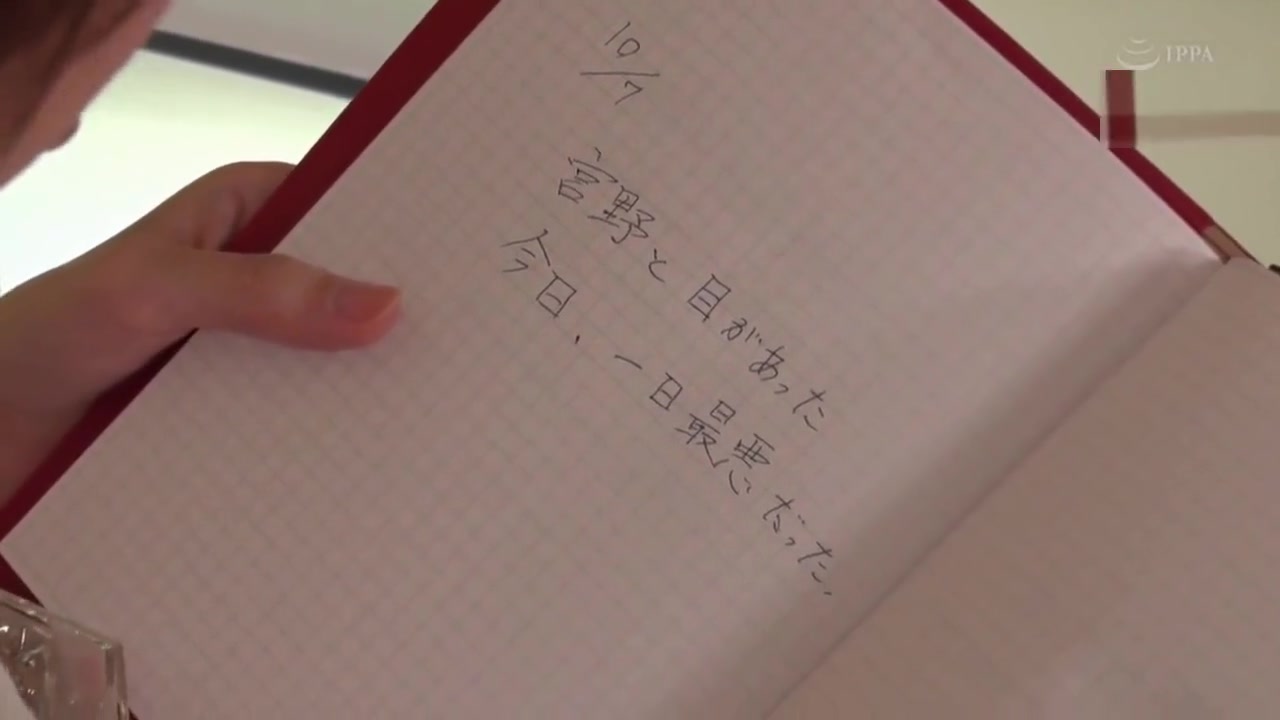 10/7
宮野と目があった
今日、一日最悪だった.
IPPA